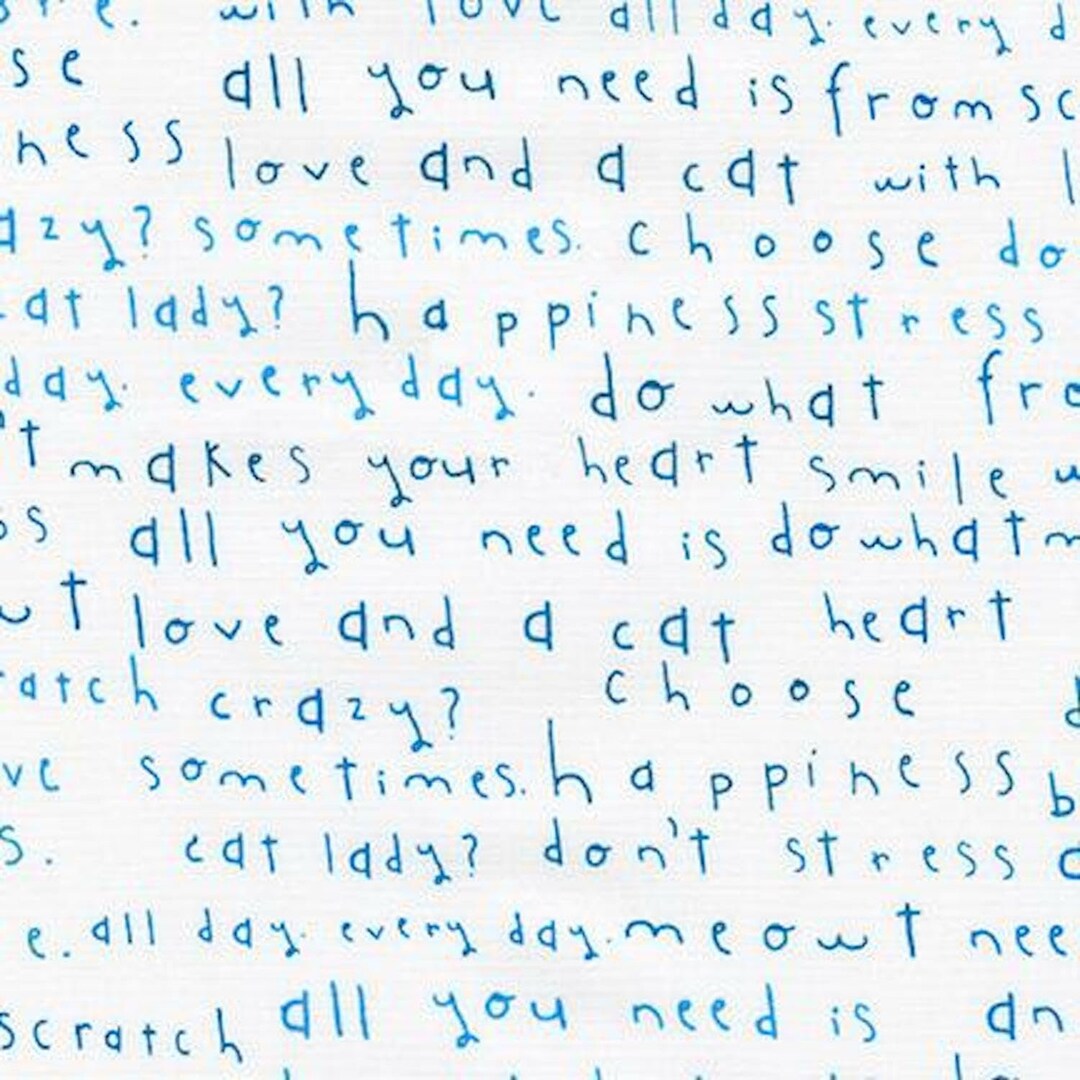 with love all day. every
se all you need is from sc
ness love and a cat with l
azy? sometimes. choose do
at lady? happiness stress
day. every day. do what fro
't makes your heart smile
ss all you need is do what m
ut love and a cat heart
atch crazy? choose d
ve sometimes. happiness b
s. cat lady? don't stress
e. all day. every day. meowt nee
scratch all you need is an